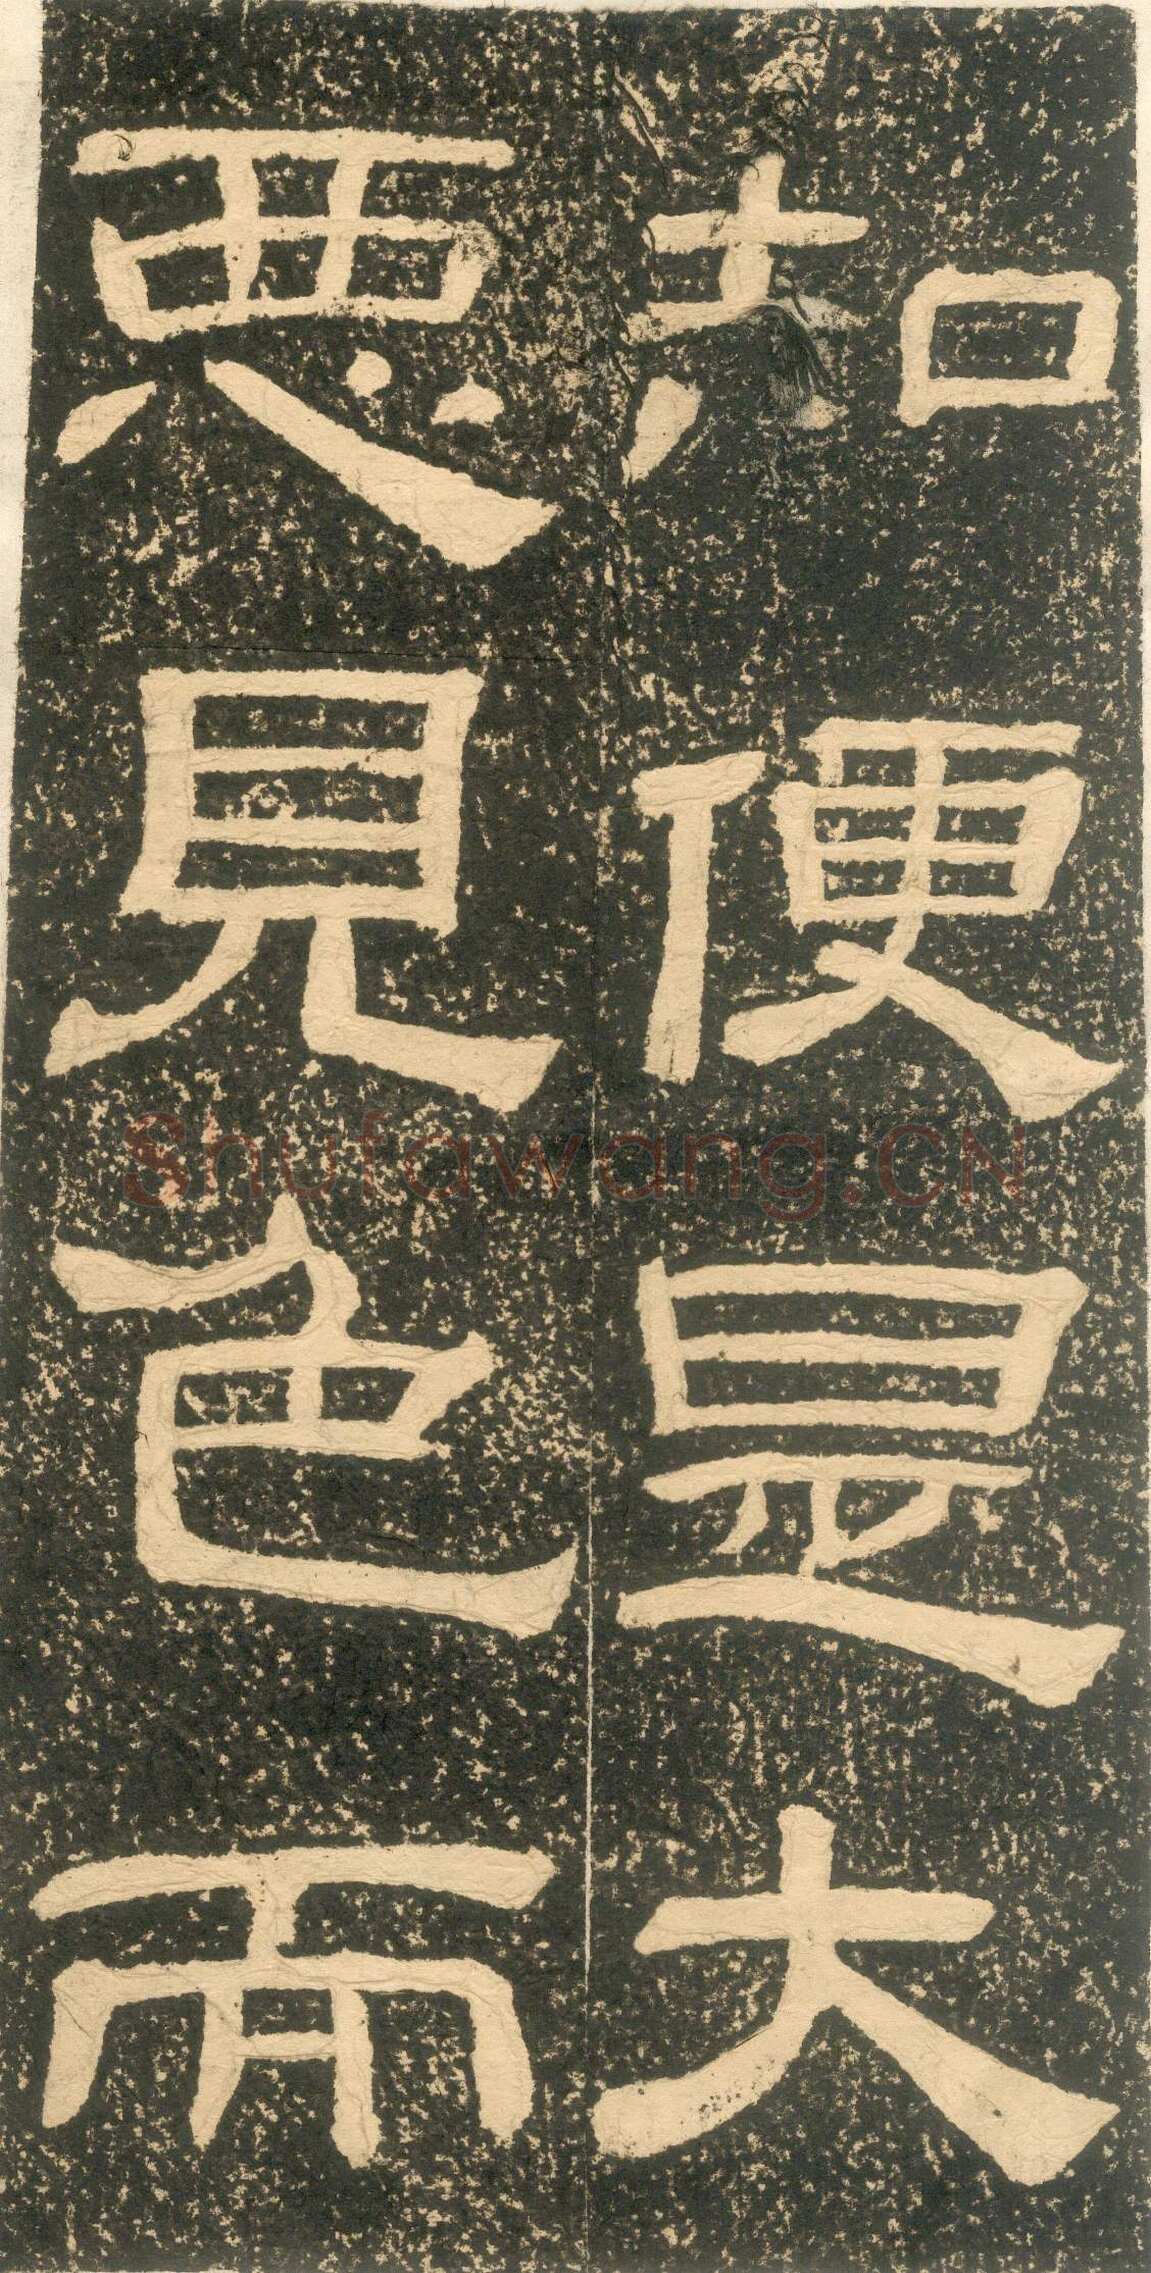 知便是大
悪見色而
Shufawang.CN